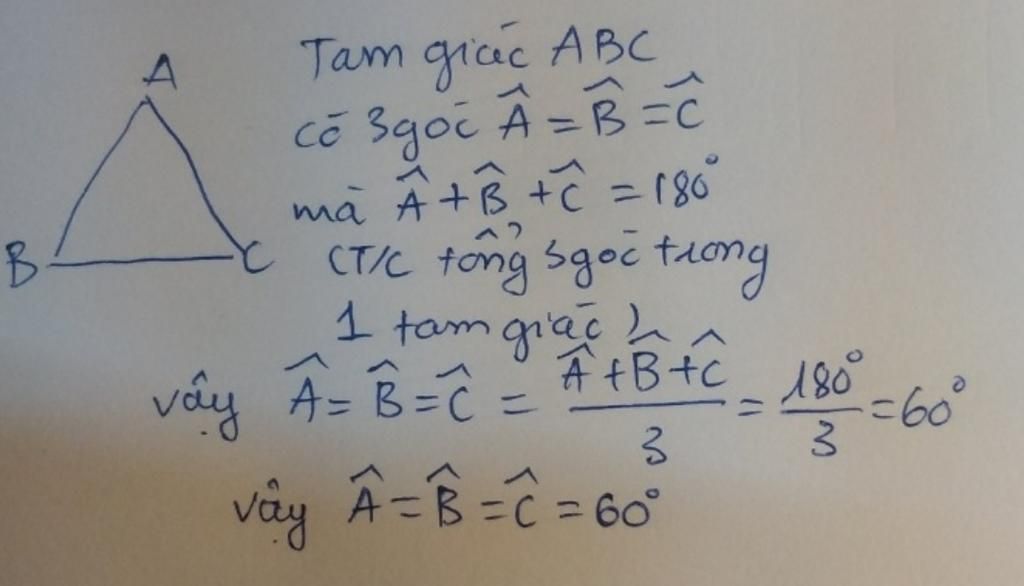 A
B
C
Tam giác ABC
có 3 góc Â = B̂ = Ĉ
mà Â + B̂ + Ĉ = 180°
(T/C tổng 3 góc trong
1 tam giác)
vậy Â = B̂ = Ĉ = (Â + B̂ + Ĉ)/3 = 180°/3 = 60°
vậy Â = B̂ = Ĉ = 60°